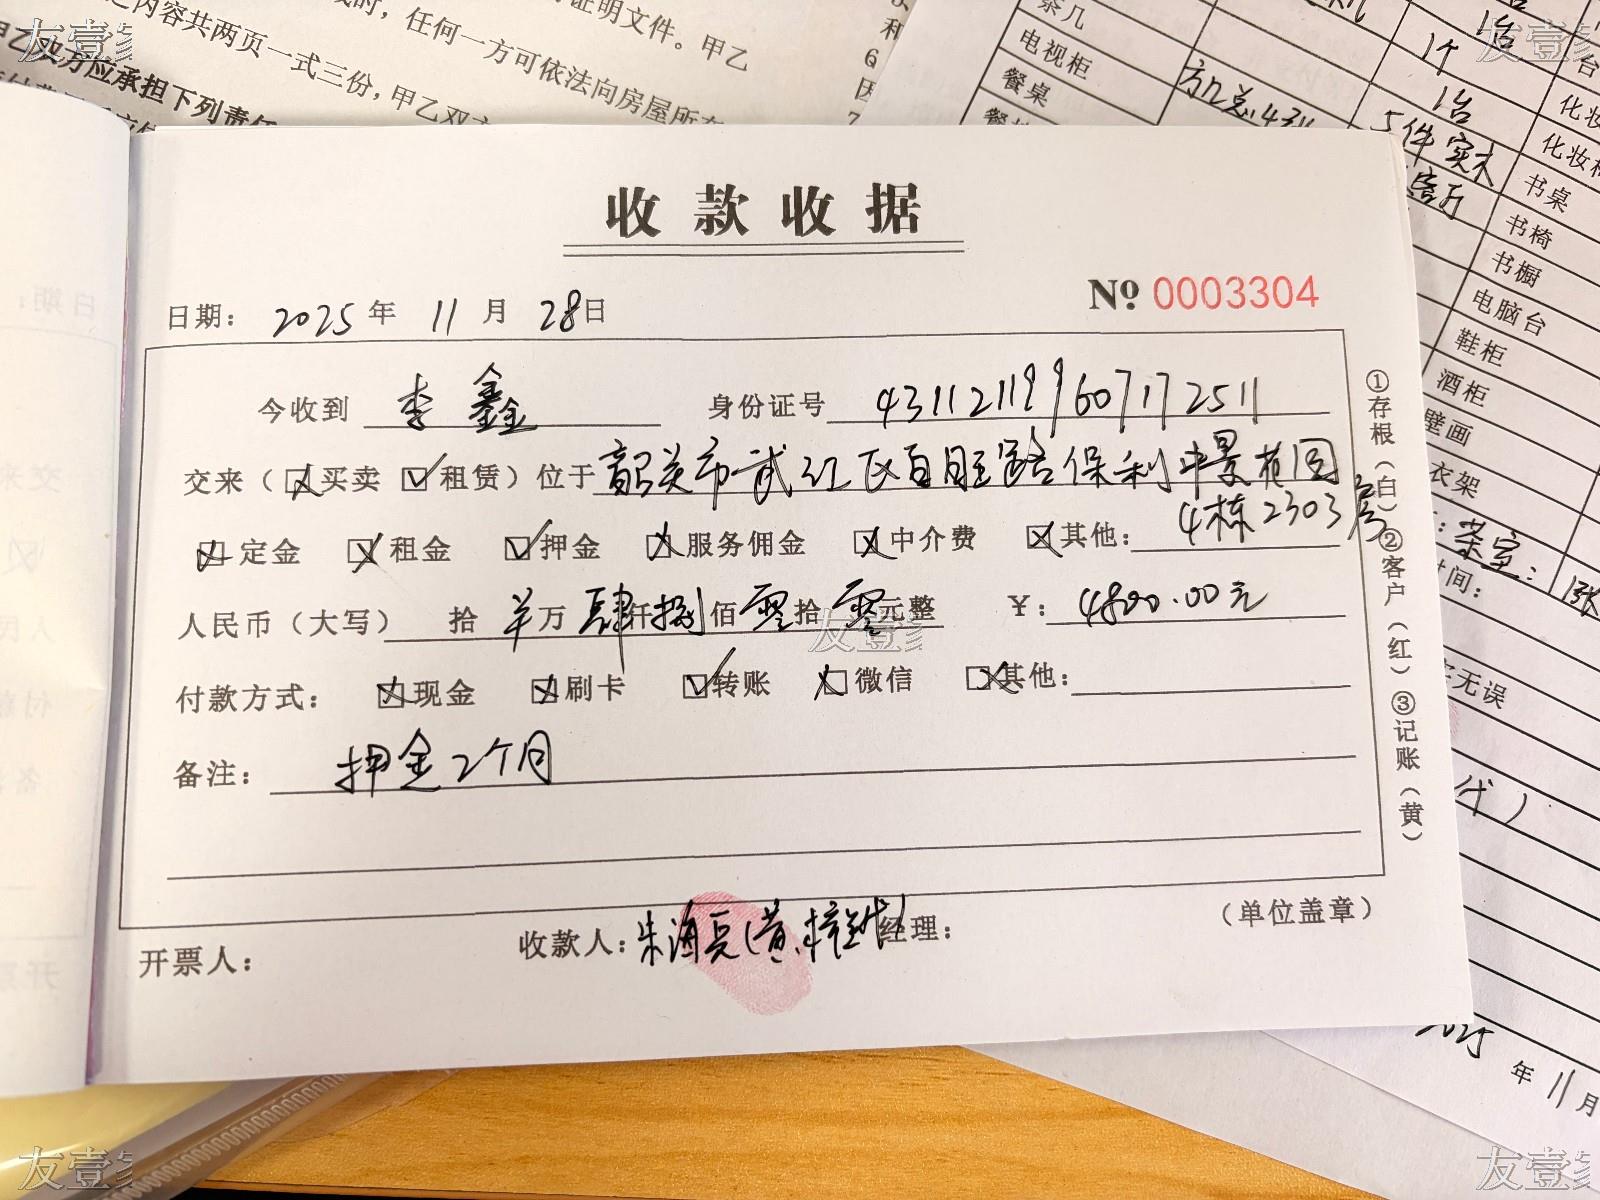 友壹家
时,任何一方可依法向房屋所在
证明文件。甲乙
之内容共两页一式三份,甲乙双方
甲乙双方应承担下列责任
茶几
电视柜
餐桌
1个
1台
5件 实木
客厅
化妆
书桌
书椅
书橱
电脑台
鞋柜
酒柜
壁画
衣架
茶室:
时间:
无误
代)
2025 年 11 月
收款收据
日期: 2025 年 11 月 28 日
№ 0003304
今收到 李鑫 身份证号 431121199607172511
交来(☒买卖 ☑租赁)位于韶关市武江区百旺路保利中景花园
4栋2303房
☒定金 ☒租金 ☑押金 ☒服务佣金 ☒中介费 ☒其他:
人民币(大写) 拾 羊万 肆仟捌佰零拾零元整 ¥: 4800.00元
付款方式: ☒现金 ☒刷卡 ☑转账 ☒微信 ☒其他:
备注: 押金2个月
开票人: 收款人: 经理: (单位盖章)
①存根(白)②客户(红)③记账(黄)
友壹家
友壹家
友壹家
友壹家